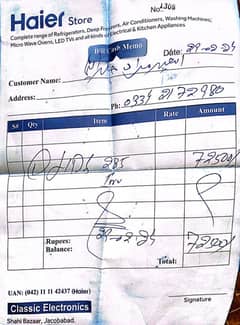 No 1308
Haier Store
Complete range of Refrigerators, Deep Freezers, Air Conditioners, Washing Machines,
Micro Wave Ovens, LED TVs and all kinds of Electrical & Kitchen Appliances
Bill/Cash Memo
Date: 29-02-24
Customer Name:
Address:
Ph: 0334
S# Qty Item Rate Amount
285 72500/
29-02-24
Rupees:
Balance:
Total: 72500/
UAN: (042) 11 11 42437 (Haier)
Classic Electronics
Shahi Bazaar, Jacobabad.
Signature